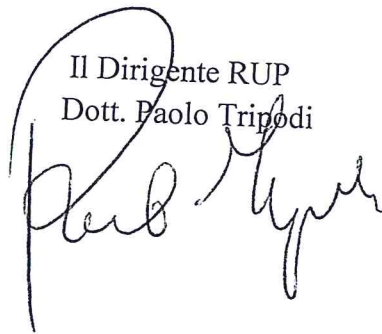 Il Dirigente RUP
Dott. Paolo Tripodi
Paolo Tripodi